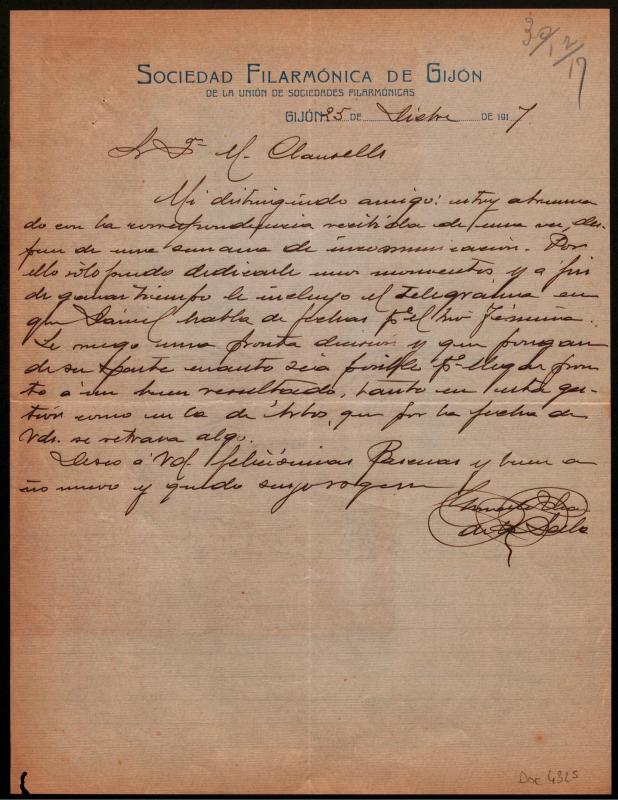 30/12/17
SOCIEDAD FILARMÓNICA DE GIJÓN
DE LA UNIÓN DE SOCIEDADES FILARMÓNICAS
GIJÓN 25 DE Dicbre DE 1917
Sr Dn M. Clausells
Mi distinguido amigo: estoy abruma
do con la correspondencia recibida de una vez, des-
pues de una semana de incomunicación. Por
ello sólo puedo dedicarle unos momentos y a fin
de ganar tiempo le incluyo el telegrama en
que Daniel habla de fechas pa el trio
Le ruego una pronta decision y que pongan
de su parte cuanto sea posible pa llegar pron
to á un buen resultado, tanto en esta ges-
tión como en la de que por la fecha de
Vds. se retrasa algo.
Deseo á Vd. felicísimas Pascuas y buen a
ño nuevo y quedo suyo
de la
Doc 4325